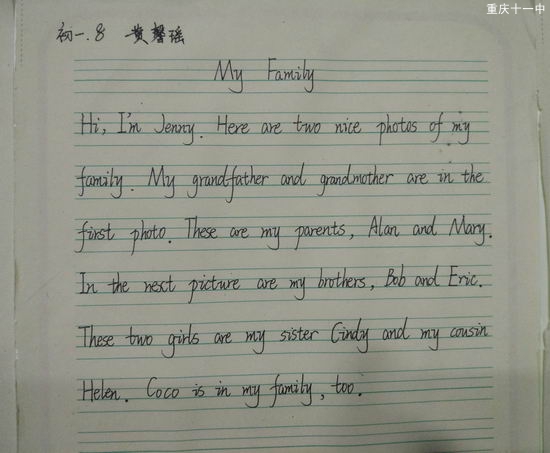 重庆十一中
初一.8 黄馨瑶
My Family
Hi, I'm Jenny. Here are two nice photos of my
family. My grandfather and grandmother are in the
first photo. These are my parents, Alan and Mary.
In the next picture are my brothers, Bob and Eric.
These two girls are my sister Cindy and my cousin
Helen. Coco is in my family, too.